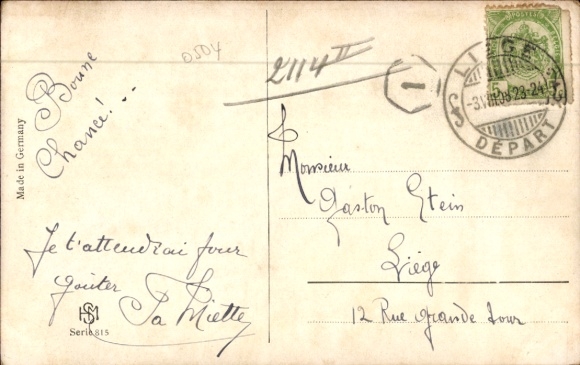 0504
2114 II
1
LIEGE
5
-3.VIII.08 23-24
DÉPART
Made in Germany
Bonne
Chance!...
Je t'attendrai pour
goûter
Ta Miette
HSM
Serie 815
Monsieur
Gaston Stein
Liége
12 Rue grande tour